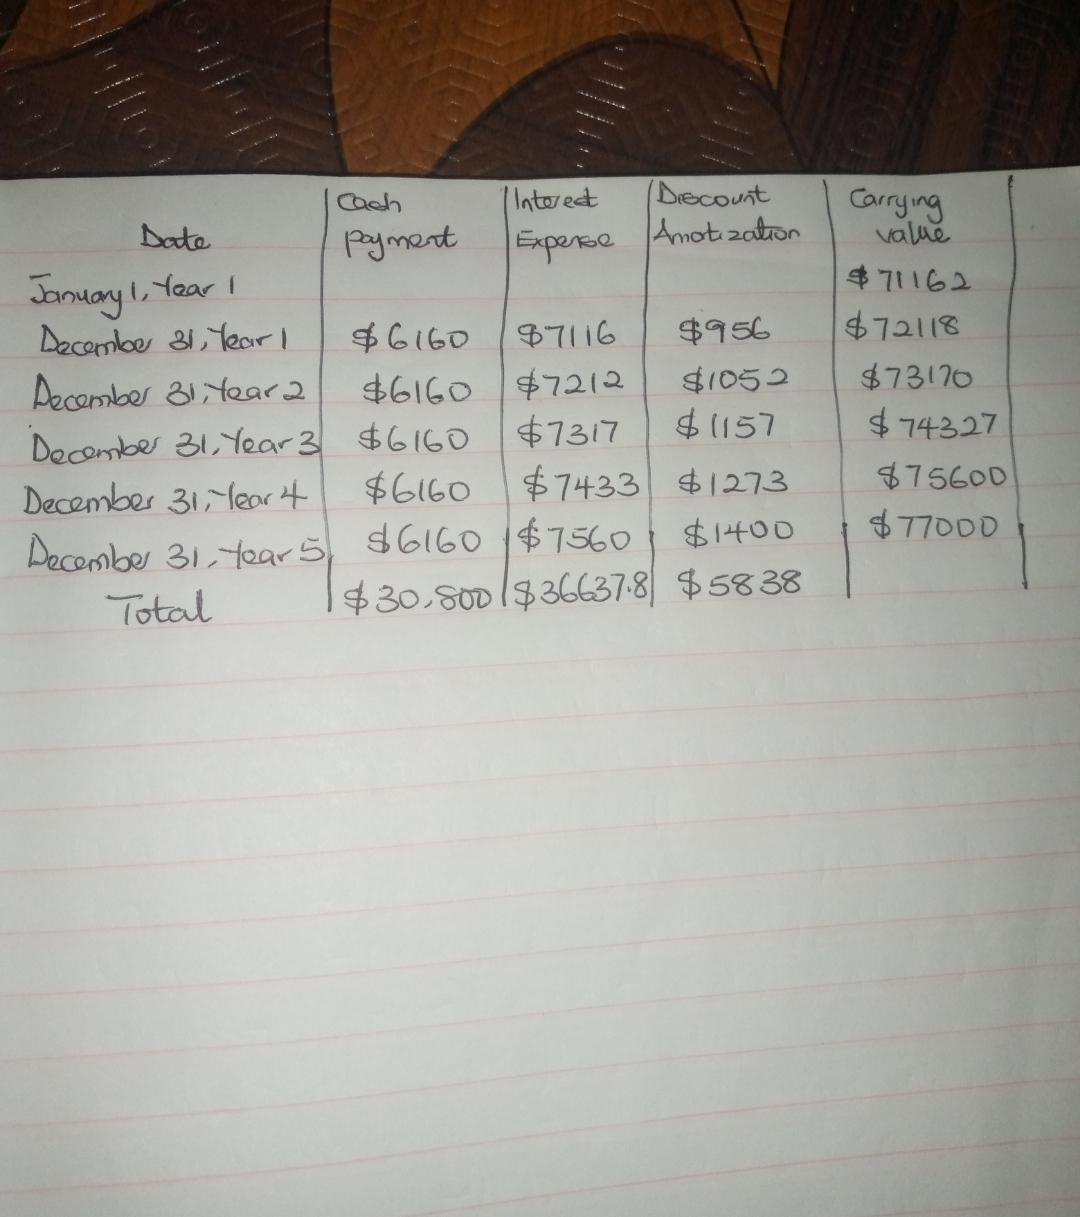 Date | Cash payment | Interest Expense | Discount Amotization | Carrying value
January 1, Year 1 | | | | $71162
December 31, Year 1 | $6160 | $7116 | $956 | $72118
December 31, Year 2 | $6160 | $7212 | $1052 | $73170
December 31, Year 3 | $6160 | $7317 | $1157 | $74327
December 31, Year 4 | $6160 | $7433 | $1273 | $75600
December 31, Year 5 | $6160 | $7560 | $1400 | $77000
Total | $30,800 | $36637.8 | $5838 |